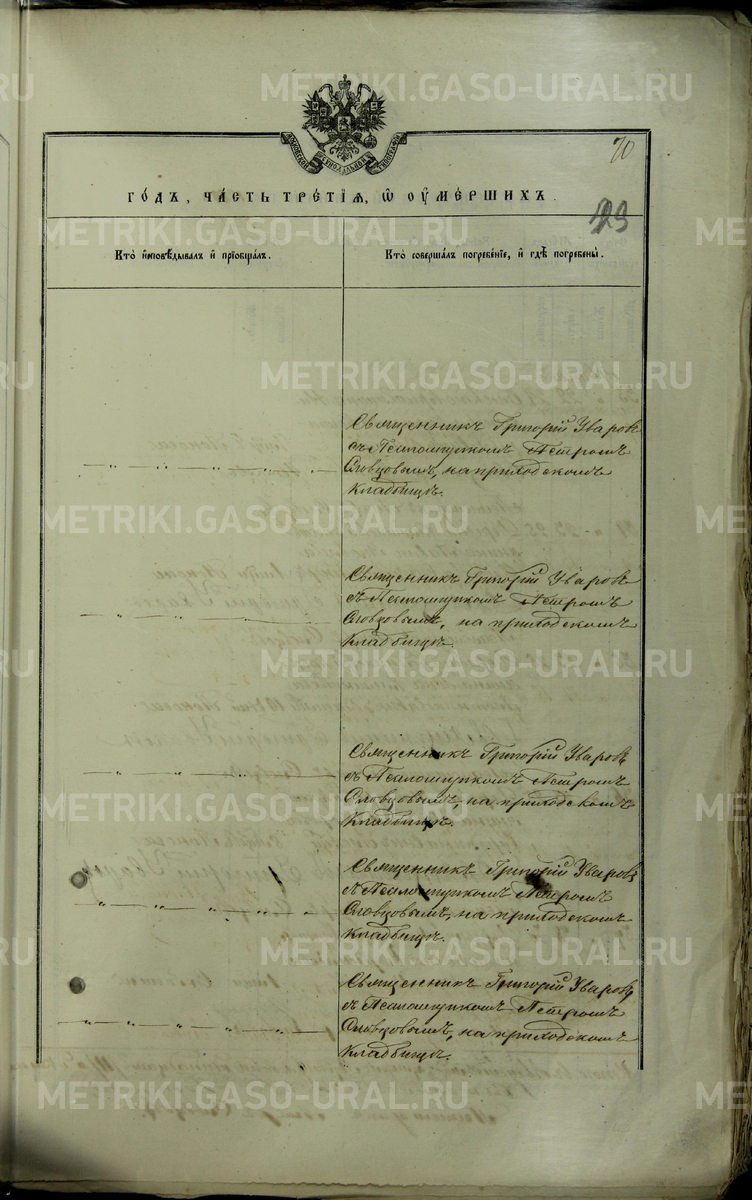 METRIKI.GASO-URAL.RU
70
СѴНОДАЛЬНОЙ
ГО́ДЪ, ЧА́СТЬ ТРЕ́ТІѦ, Ѡ ОУ҆МЕ́РШИХЪ.
23
Кто̀ и҆сповѣ́дывалъ и҆ прїѡбща́лъ.
Кто̀ соверша́лъ погребе́нїе, и҆ гдѣ̀ погребены̀.
Священникъ Григорій Уваровъ
съ Псаломщикомъ Петромъ
Словцовымъ, на приходскомъ
кладбищѣ.
Священникъ Григорій Уваровъ
съ Псаломщикомъ Петромъ
Словцовымъ, на приходскомъ
кладбищѣ.
Священникъ Григорій Уваровъ
съ Псаломщикомъ Петромъ
Словцовымъ, на приходскомъ
кладбищѣ.
Священникъ Григорій Уваровъ
съ Псаломщикомъ Петромъ
Словцовымъ, на приходскомъ
кладбищѣ.
Священникъ Григорій Уваровъ
съ Псаломщикомъ Петромъ
Словцовымъ, на приходскомъ
кладбищѣ.